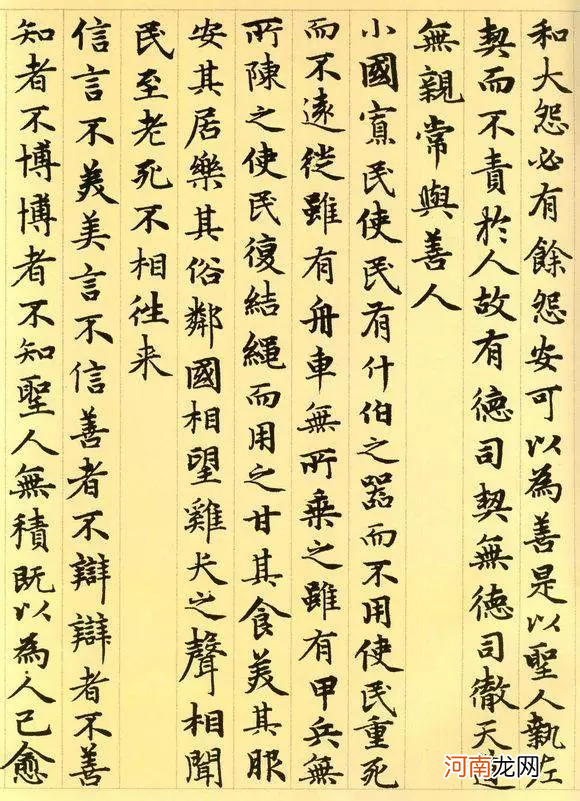 和大怨必有餘怨安可以為善是以聖人執左
契而不責於人故有德司契無德司徹天道
無親常與善人
小國寡民使民有什伯之器而不用使民重死
而不遠徙雖有舟車無所乘之雖有甲兵無
所陳之使民復結繩而用之甘其食美其服
安其居樂其俗鄰國相望雞犬之聲相聞
民至老死不相往来
信言不美美言不信善者不辯辯者不善
知者不博博者不知聖人無積既以為人己愈
河南龙网